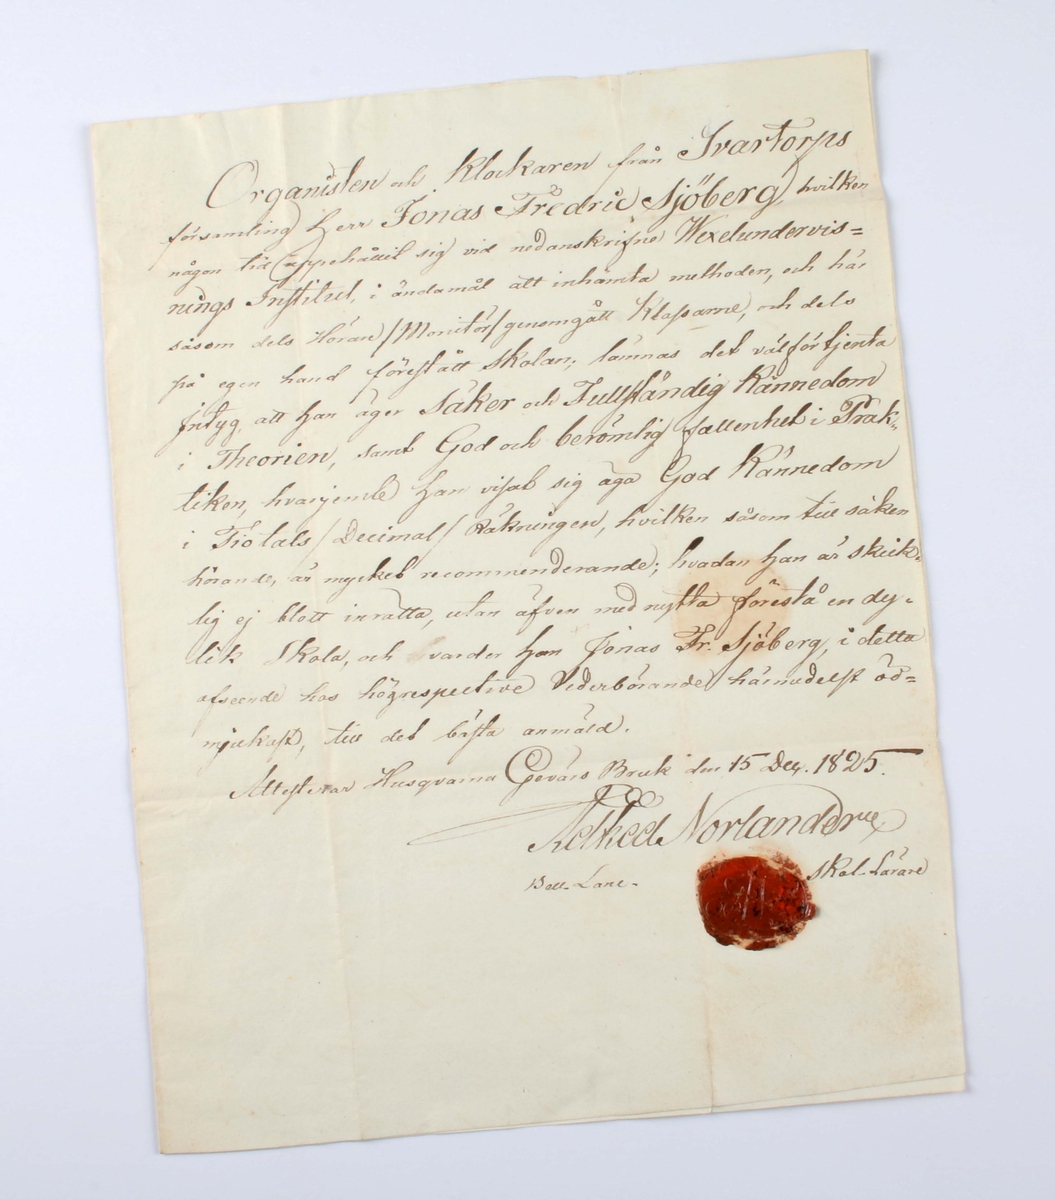 Organisten och Klockaren från Svartorps
församling Herr Jonas Fredric Sjöberg, hvilken
någon tid uppehållit sig vid nedanskrifne Wexelundervis=
nings Institut, i ändamål att inhämta methoden, och här
såsom dels Höran/Monitör/genomgått Klasserne, och dels
på egen hand förestått skolan; lämnas det välförtjenta
Intyg, att han äger Säker och Fullständig Kännedom
i Theorien, samt God och berömlig fallenhet i Prak=
tiken, hvarjemte han visat sig äga God Kännedom
i Tiotals/Decimal/Räkningen, hvilken såsom till saken
hörande, är mycket recommenderande; hvadan han är skick=
lig ej blott inrätta, utan äfven med nytta förestå en dy=
lik Skola, och varder han Jonas Fr. Sjöberg, i detta
afseende hos högrespective Vederbörande härmedelst öd=
mjukast, till det bästa anmäld.
Attesterar Husqvarna Gevärs Bruk den 15 Dec. 1825.
Norlander
Bell-Lanc- Skol-Lärare